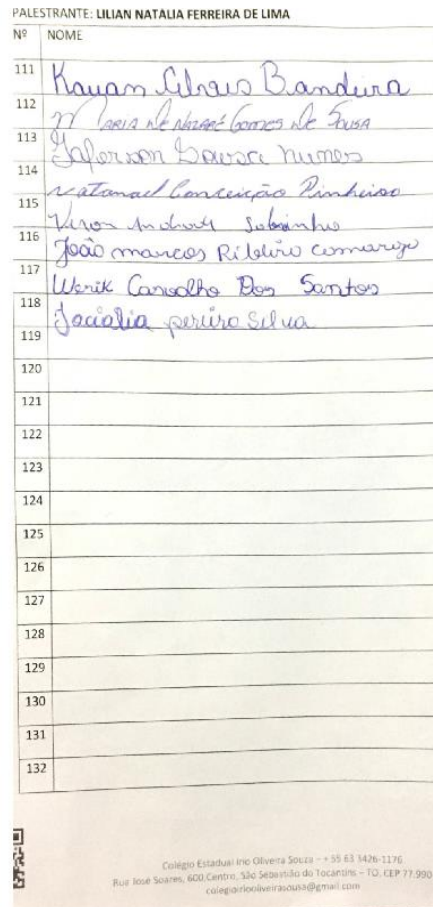 PALESTRANTE: LILIAN NATÁLIA FERREIRA DE LIMA
Nº NOME
111 Kauan Bandeira
112 Maria De Nazaré Gomes De Sousa
113 Jaferson Sousa nunes
114 natanael Conceição Pinheiro
115 Sobrinho
116 João marcos Ribeiro camargo
117 Werik Carvalho Dos Santos
118 Jocialia pereira Silva
119
120
121
122
123
124
125
126
127
128
129
130
131
132
Colégio Estadual Irio Oliveira Souza – + 55 63 3426-1176
Rua José Soares, 600,Centro, São Sebastião do Tocantins – TO. CEP 77.990
colegioiriooliveirasousa@gmail.com